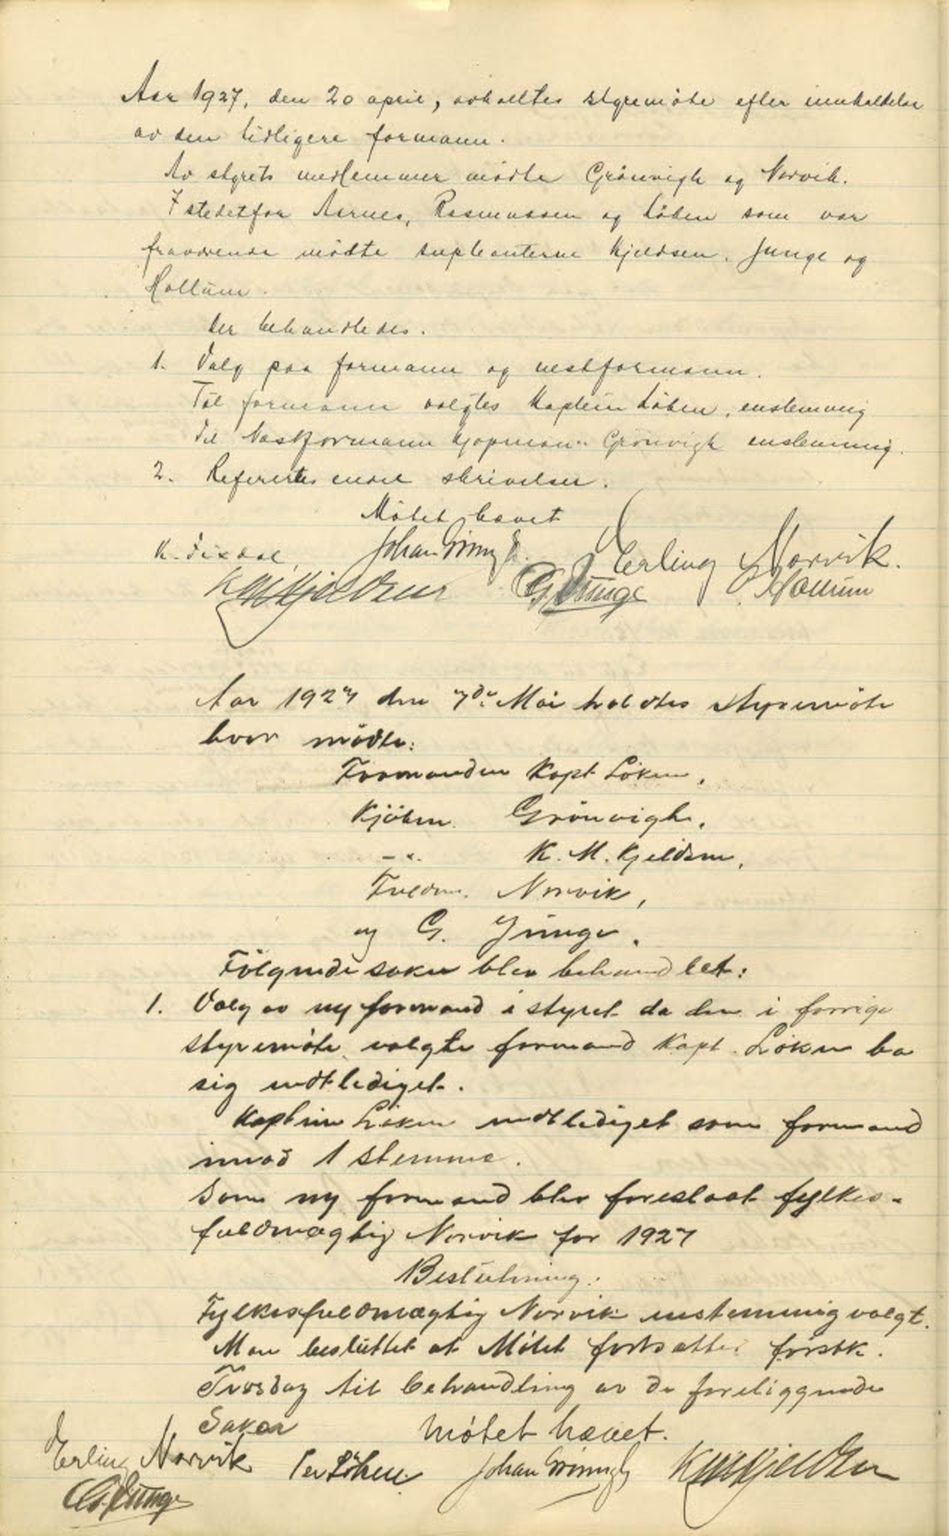 Aar 1927, den 20 april, avholltes styremöte efter innkaldelse
av den tidligere formann.
Av styrets medlemmer mödte Grönvigh og Norvik.
I stedetfor Aarnes, Rasmussen og Löken som var
fraværende mödte supleanterne Kjeldsen, Junge og
Hollum.
Der behandledes.
1. Valg paa formann og nestformann.
Til formann valgtes Kaptein Löken, enstemmig
til Næstformann Kjöpmann Grönvigh enstemmig.
2. Refererte endel skrivelser.
Mötet hævet
Johan Grönvigh. Erling Norvik.
K M Kjeldsen G. Junge Hollum
Aar 1927 den 7de Mai holdtes styremöte
hvor mödte:
Formanden Kapt Löken,
Kjöbm. Grönvigh,
-"- K. M. Kjeldsen,
Fuldm. Norvik,
og G. Junge.
Fölgende saker blev behandlet:
1. Valg av ny formand i styret da den i forrige
styremöte valgte formand Kapt. Löken ba
sig undtlediget.
Kaptein Löken undtlediget som formand
imod 1 stemme.
Som ny formand blev foreslaat fylkes-
fuldmægtig Norvik for 1927
Beslutning:
Fylkesfuldmægtig Norvik enstemmig valgt.
Man besluttet at Mötet fortsætter förstk.
Torsdag til behandling av de foreliggende
Saker Mötet hævet.
Erling Norvik Per Löken Johan Grönvigh K M Kjeldsen
G. Junge